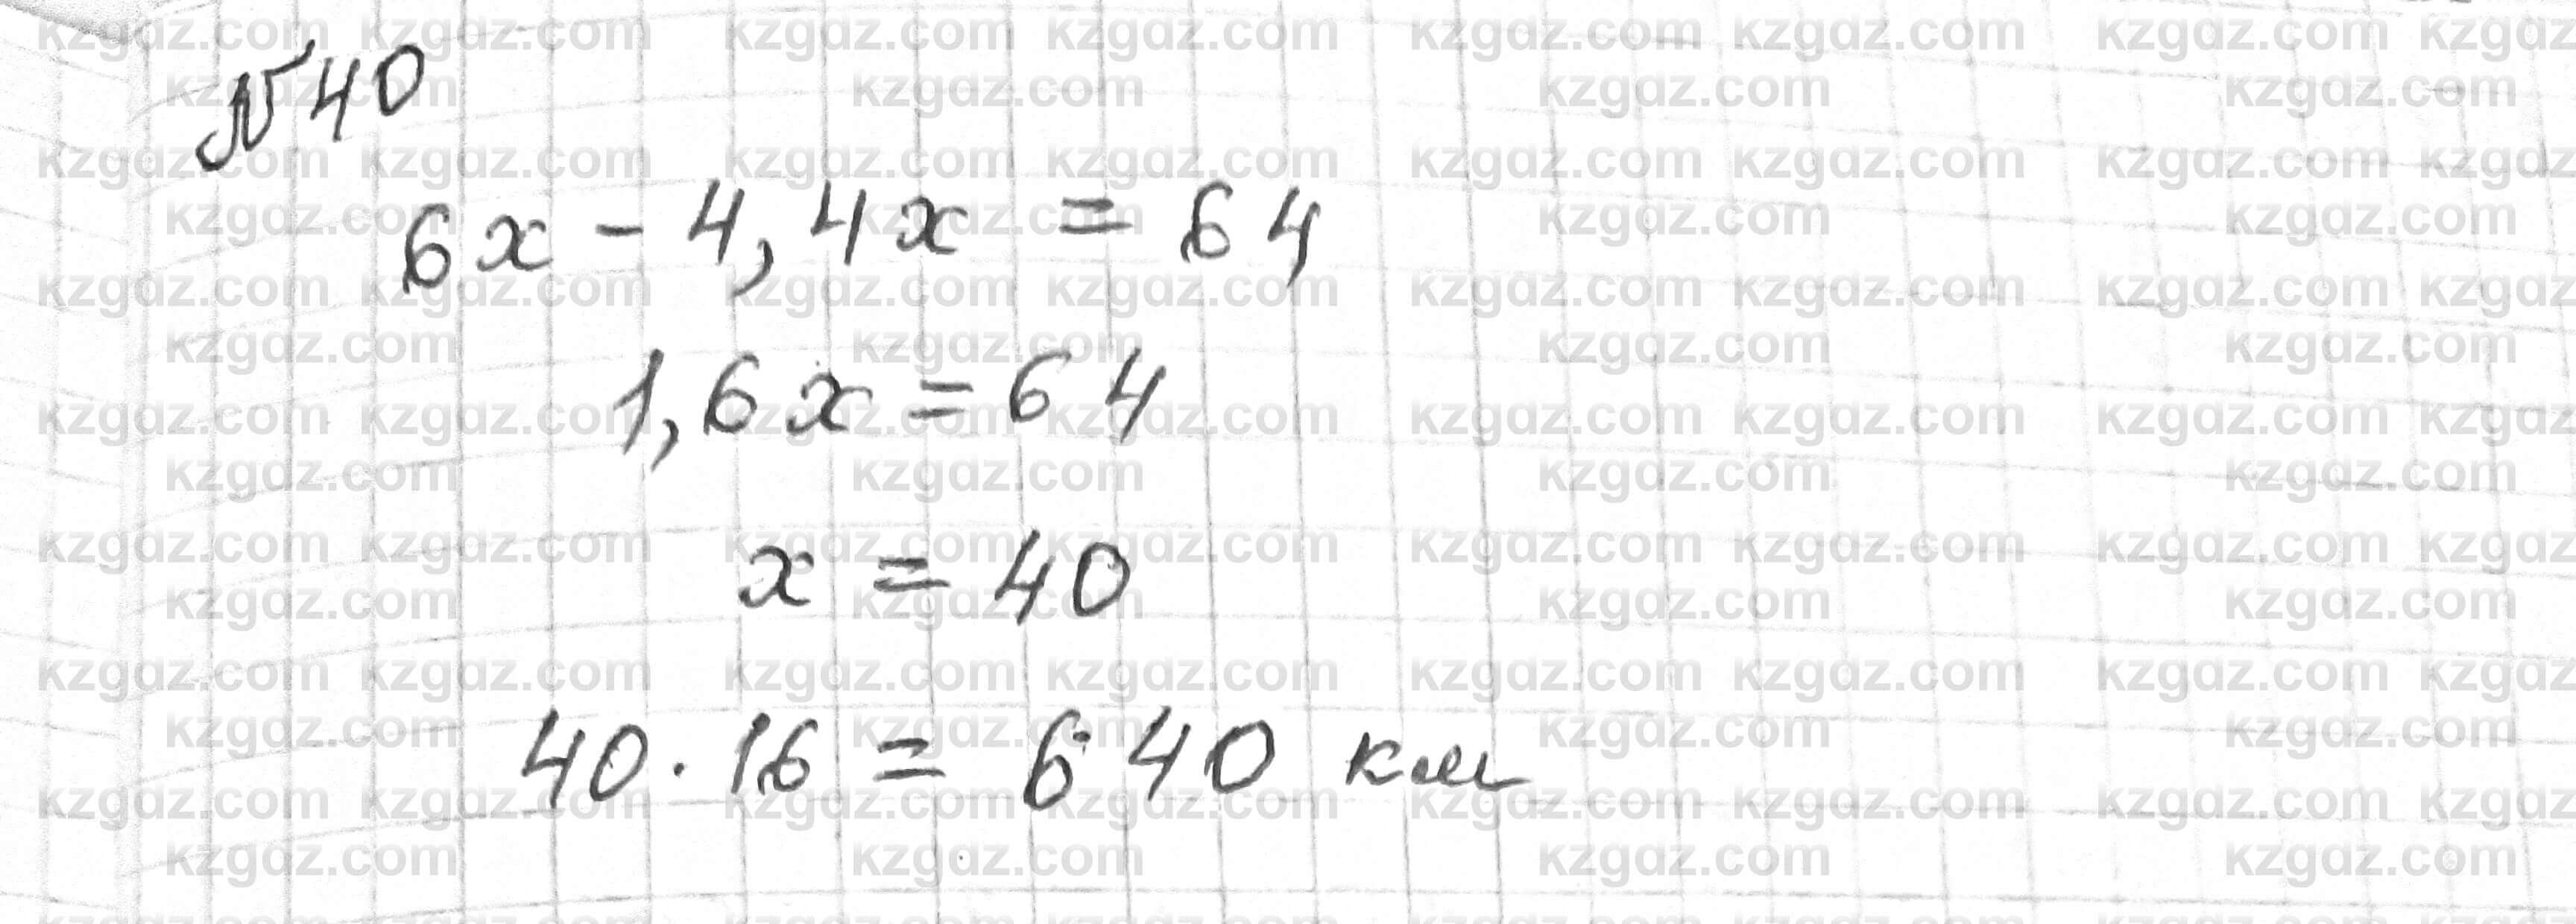 №40
6x - 4,4x = 64
1,6x = 64
x = 40
40 · 16 = 640 км